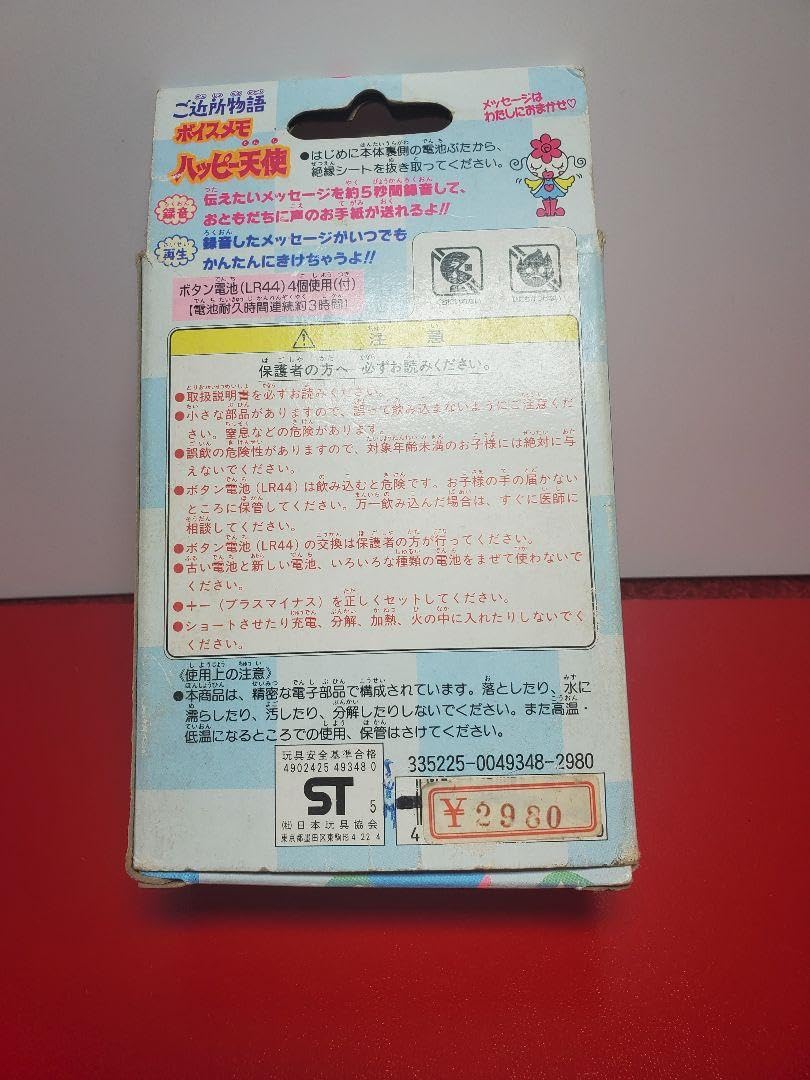 ご近所物語
ボイスメモ
ハッピー天使
メッセージは
わたしにおまかせ♡
●はじめに本体裏側の電池ぶたから、
絶縁シートを抜き取ってください。
録音 伝えたいメッセージを約5秒間録音して、
おともだちに声のお手紙が送れるよ!!
再生 録音したメッセージがいつでも
かんたんにきけちゃうよ!!
ボタン電池(LR44)4個使用(付)
【電池耐久時間連続約3時間】
注意
保護者の方へ 必ずお読みください。
●取扱説明書を必ずお読みください。
●小さな部品がありますので、誤って飲み込まないようにご注意くだ
さい。窒息などの危険があります。
●誤飲の危険性がありますので、対象年齢未満のお子様には絶対に与
えないでください。
●ボタン電池(LR44)は飲み込むと危険です。お子様の手の届かない
ところに保管してください。万一飲み込んだ場合は、すぐに医師に
相談してください。
●ボタン電池(LR44)の交換は保護者の方が行ってください。
●古い電池と新しい電池、いろいろな種類の電池をまぜて使わないで
ください。
●＋−(プラスマイナス)を正しくセットしてください。
●ショートさせたり充電、分解、加熱、火の中に入れたりしないでく
ください。
《使用上の注意》
●本商品は、精密な電子部品で構成されています。落としたり、水に
濡らしたり、汚したり、分解したりしないでください。また高温・
低温になるところでの使用、保管はさけてください。
玩具安全基準合格
4902425 49348 0
ST 5
㈳日本玩具協会
東京都墨田区東駒形4-22-4
335225-0049348-2980
4
¥2980